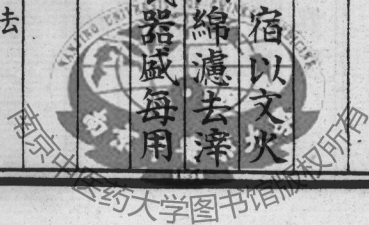 宿以文火
綿濾去滓
器盛每用
去
南京中医药大学图书馆版权所有